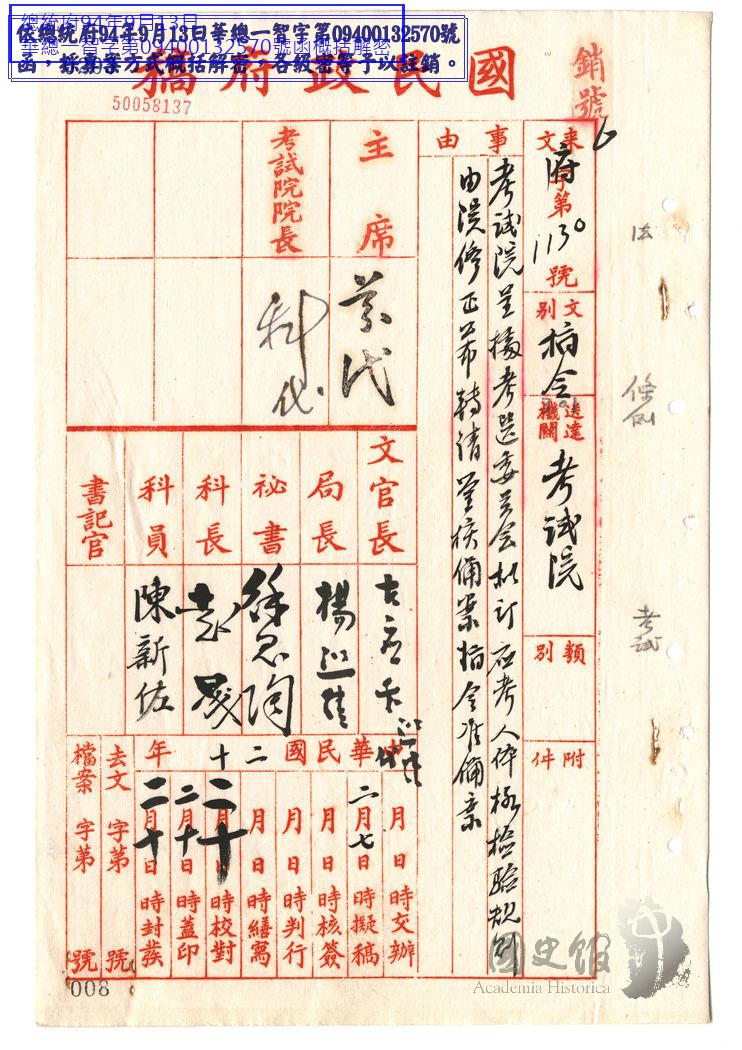 總統府94年9月13日
華總一智字第09400132570號函概括解密
依總統府94年9月13日華總一智字第09400132570號
函，採專案方式概括解密，各級密等予以註銷。
國民政府稿
50058137
銷號
來文
府字第1130號
文別
指令
送達機關
考試院
類別
附件
事由
考試院呈據考選委員會擬訂應考人体格檢驗規則
由誤修正第轉請鑒核備案指令准備案
主席
考試院院長
科代
文官長
局長
祕書
科長
科員
書記官
陳新佐
中華民國二十年
月日時交辦
二月七日時擬稿
月日時核簽
月日時判行
月日時繕寫
二月十日時校對
二月十日時蓋印
二月十日時封發
去文字第號
檔案字第號
法
條例
考試
008
國史館
Academia Historica